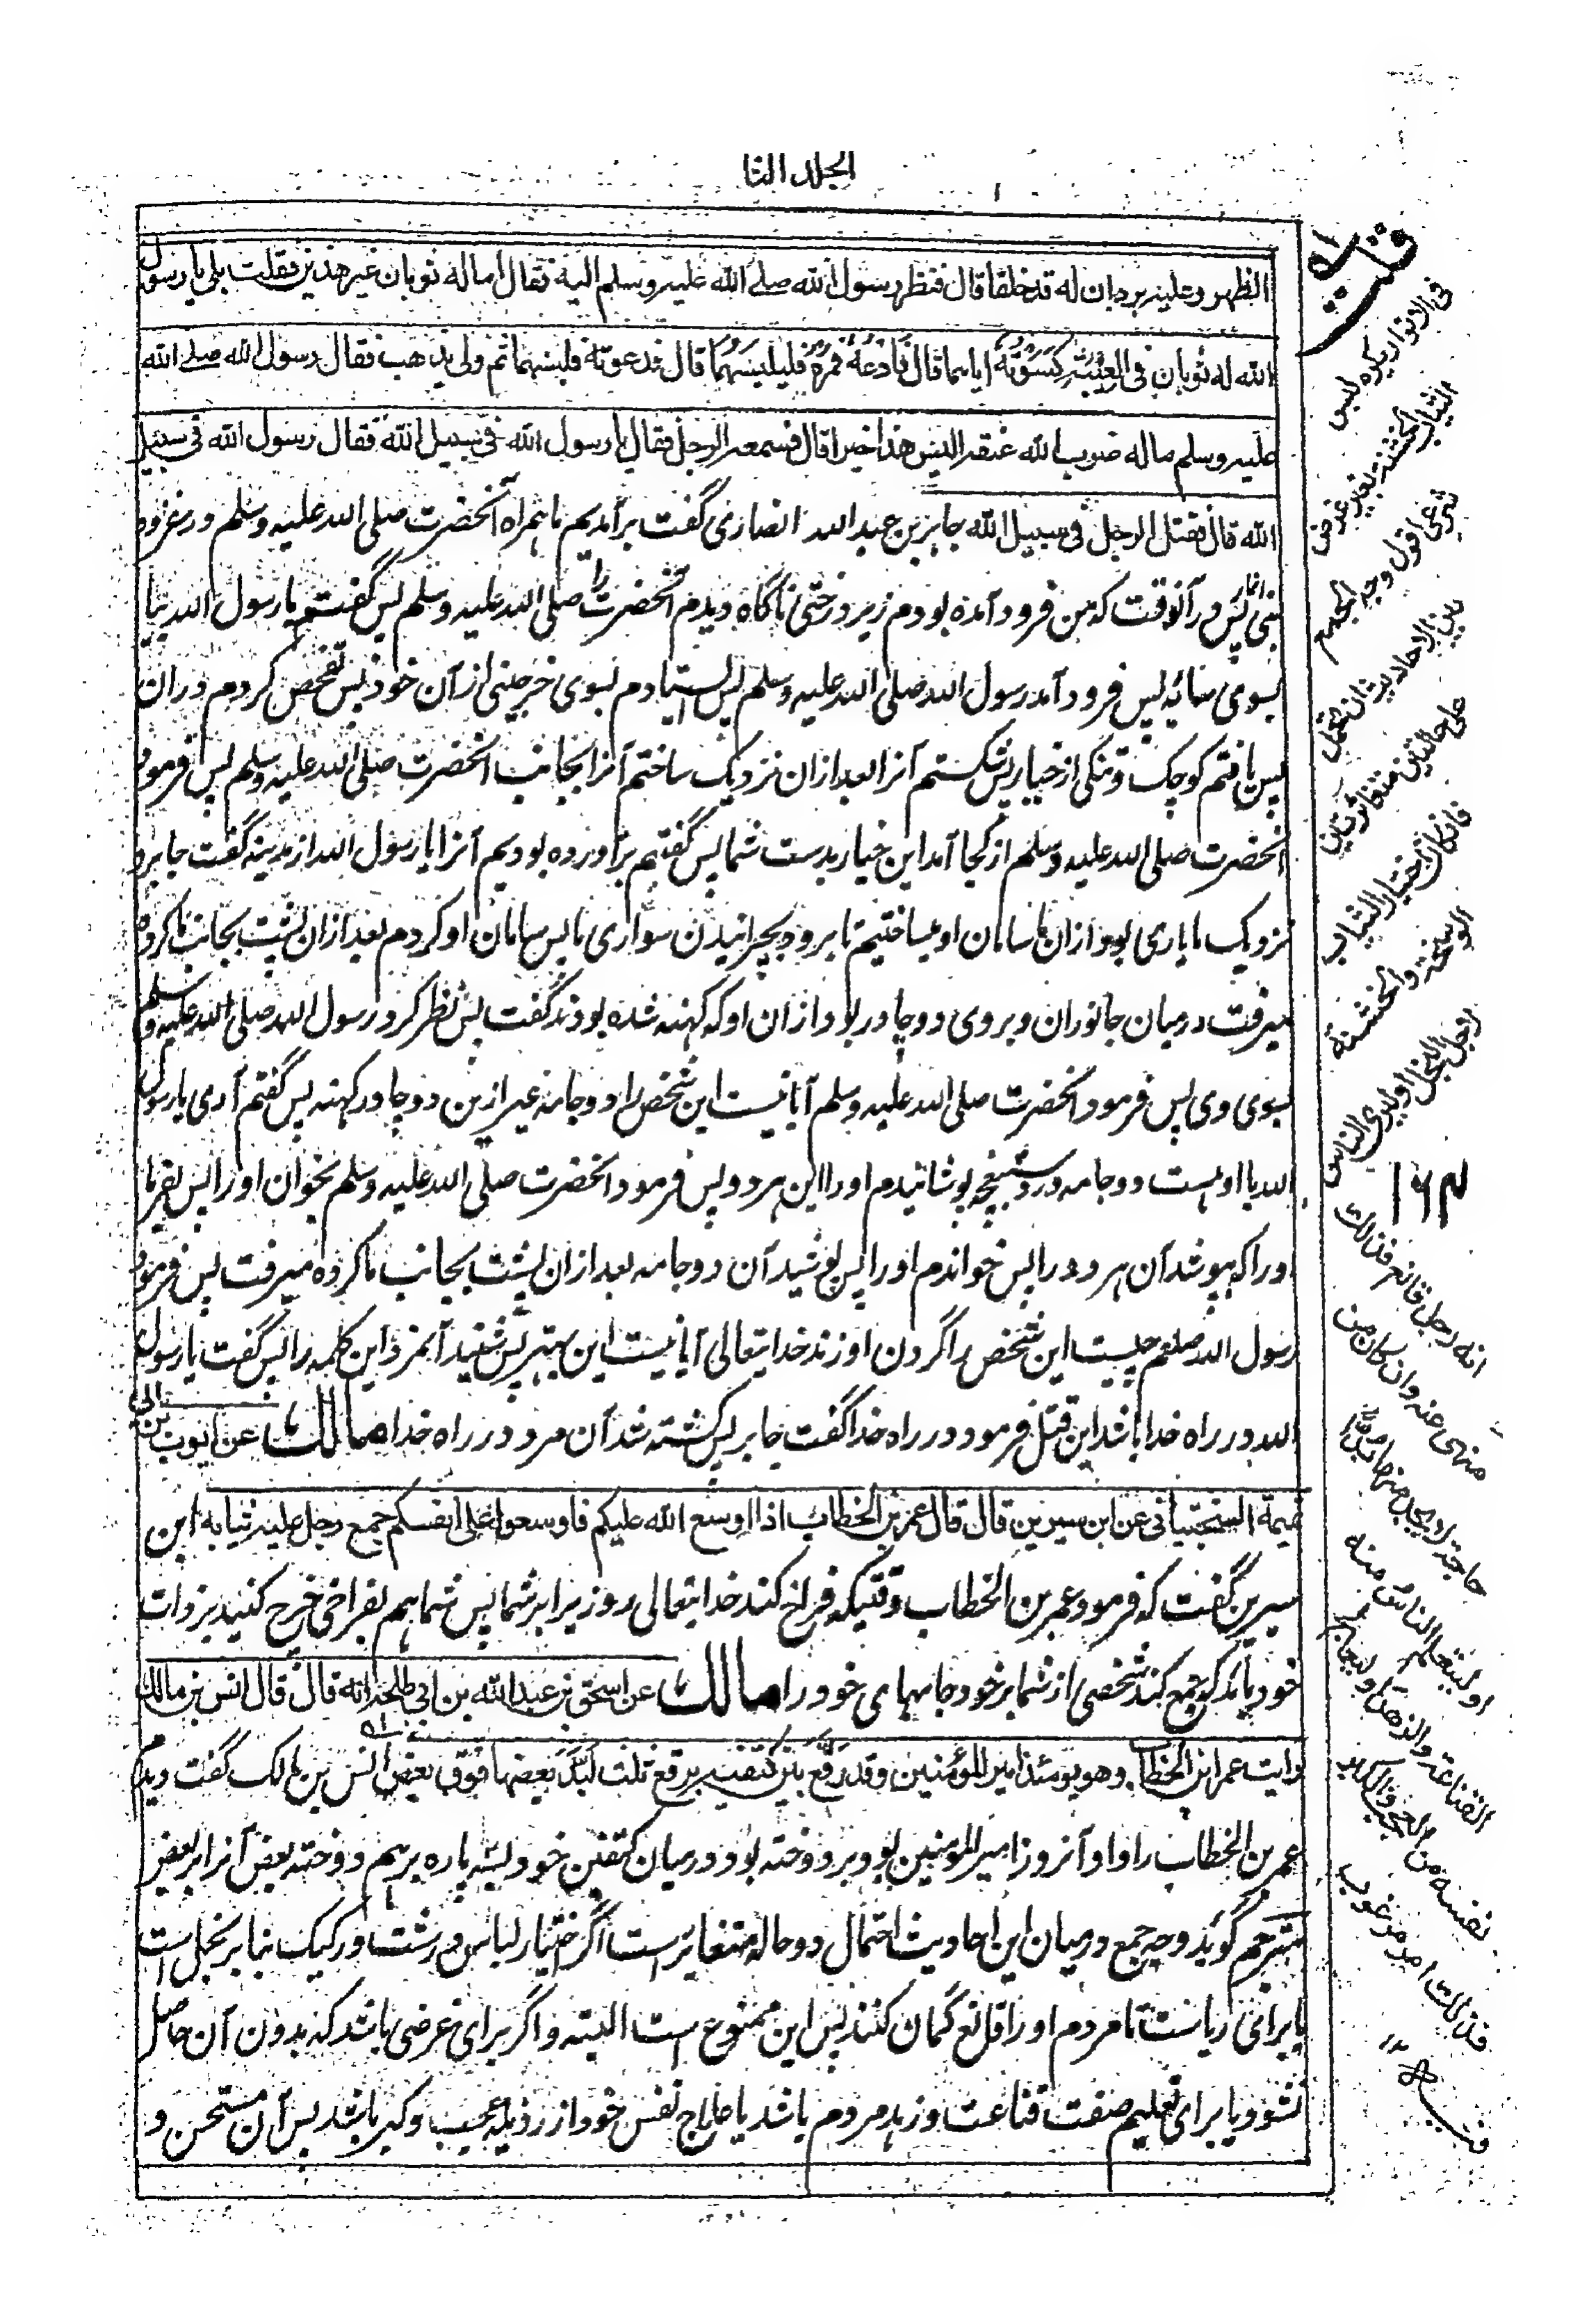 الجلد الثا
الظهر وعليه بردان له قد خلقا قال فنظر رسول الله صلى الله عليه وسلم اليه فقال اما له ثوبان غير هذين فقلت بلى يا رسول
الله له ثوبان فى العيبة كسوته اياهما قال فادعه فمره فليلبسهما قال فدعوته فلبسهما ثم ولى يذهب فقال رسول الله صلى الله
عليه وسلم ماله ضرب الله عنقه اليس هذا خيرا قال فسمعه الرجل فقال يا رسول الله فى سبيل الله فقال رسول الله فى سبيل
الله قال فقتل الرجل فى سبيل الله جابر بن عبد الله انصارى گفت برآمديم ما همراه آنحضرت صلى الله عليه وسلم در غزوه
بنى انمار پس در آنوقت كه من فرود آمده بودم زير درختى ناگاه ديدم آنحضرت را صلى الله عليه وسلم پس گفتم يا رسول الله بيا
بسوى سايه پس فرود آمد رسول الله صلى الله عليه وسلم پس ايستادم بسوى خرجينى از آن خود پس تفحص كردم دران
پس يافتم كوچک و تنكى از خيار پس شكستم آنرا بعد ازان نزديک ساختم آنرا بجانب آنحضرت صلى الله عليه وسلم پس فرمود
آنحضرت صلى الله عليه وسلم از كجا آمد اين خيار بدست شما پس گفتم برآورده بوديم آنرا يا رسول الله از مدينه گفت جابر و
نزديک ما يارى بود ازان ما سامان او ميساختيم تا برود بچرانيدن سوارى ما پس سامان او كردم بعد ازان پشت بجانب ما كرده
ميرفت درميان جانوران و بروى دو چادر بود ازان او كه كهنه شده بودند گفت پس نظر كرد رسول الله صلى الله عليه وسلم
بسوى وى پس فرمود آنحضرت صلى الله عليه وسلم آيا نيست اين شخص را دو جامه غير ازين دو چادر كهنه پس گفتم آرى يا رسول
الله با او هست دو جامه در بغچه پوشانيدم او را اين هر دو پس فرمود آنحضرت صلى الله عليه وسلم بخوان او را پس بفرما
او را كه بپوشد آن هر دو را پس خواندم او را پس پوشيد آن دو جامه بعد ازان پشت بجانب ما كرده ميرفت پس فرمود
رسول الله صلعم چيست اين شخص را گردن او زند خدايتعالى آيا نيست اين بهتر پس شنيد آنمرد اين كلمه را پس گفت يا رسول
الله در راه خدا باشد اين قتل فرمود در راه خدا گفت جابر پس كشته شد آن مرد در راه خدا مالك عن ايوب بن ابى
تميمة السختيانى عن ابن سيرين قال قال عمر بن الخطاب اذا اوسع الله عليكم فاوسعوا على انفسكم جمع رجل عليه ثيابه ابن
سيرين گفت كه فرمود عمر بن الخطاب وقتيكه فراخ كند خدايتعالى روزى را بر شما پس شما هم بفراخى خرج كنيد بر ذات
خود بايد كه جمع كند شخصى از شما بر خود جامهاى خود را مالك عن اسحق بن عبد الله بن ابى طلحة انه قال قال انس بن مالك
رايت عمر ابن الخطاب وهو يومئذ امير المؤمنين وقد رقع بين كتفيه برقع ثلث لبد بعضها فوق بعض انس بن مالك گفت ديدم
عمر بن الخطاب را و او آنروز امير المومنين بود و بر دوخته بود درميان كتفين خود سه پاره بر هم دوخته بعض آنرا بر بعض
مترجم گويد وجه جمع درميان اين احاديث احتمال دو حاله متغاير است اگر اختيار لباس درشت و ركيک بنا بر بخل است
يا براى رياست تا مردم او را قانع گمان كنند پس اين ممنوع است البته و اگر براى غرضى باشد كه بدون آن حاصل
نشود و يا براى تعليم صفت قناعت و زهد مردم باشد يا علاج نفس خود از رذيله عجب و كبر باشد پس آن مستحسن و
قلت
فى الانوار يكره لبس
الثياب الخشنة بغير غرض
شرعى اقول وجه الجمع
بين الاحاديث ان تحمل
على حالتين متغائرتين
فان كان اختيار الثياب
الوسخة والخشنة
لاجل البخل او ليرى الناس
١٦٣
انه رجل قانع فذلك
منهى عنه وان كان من
او ليتعلم الناس منه
القناعة والزهد او ليعالج
نفسه من العجب والكبر
فذلك امر مرغوب
فيه ١٢